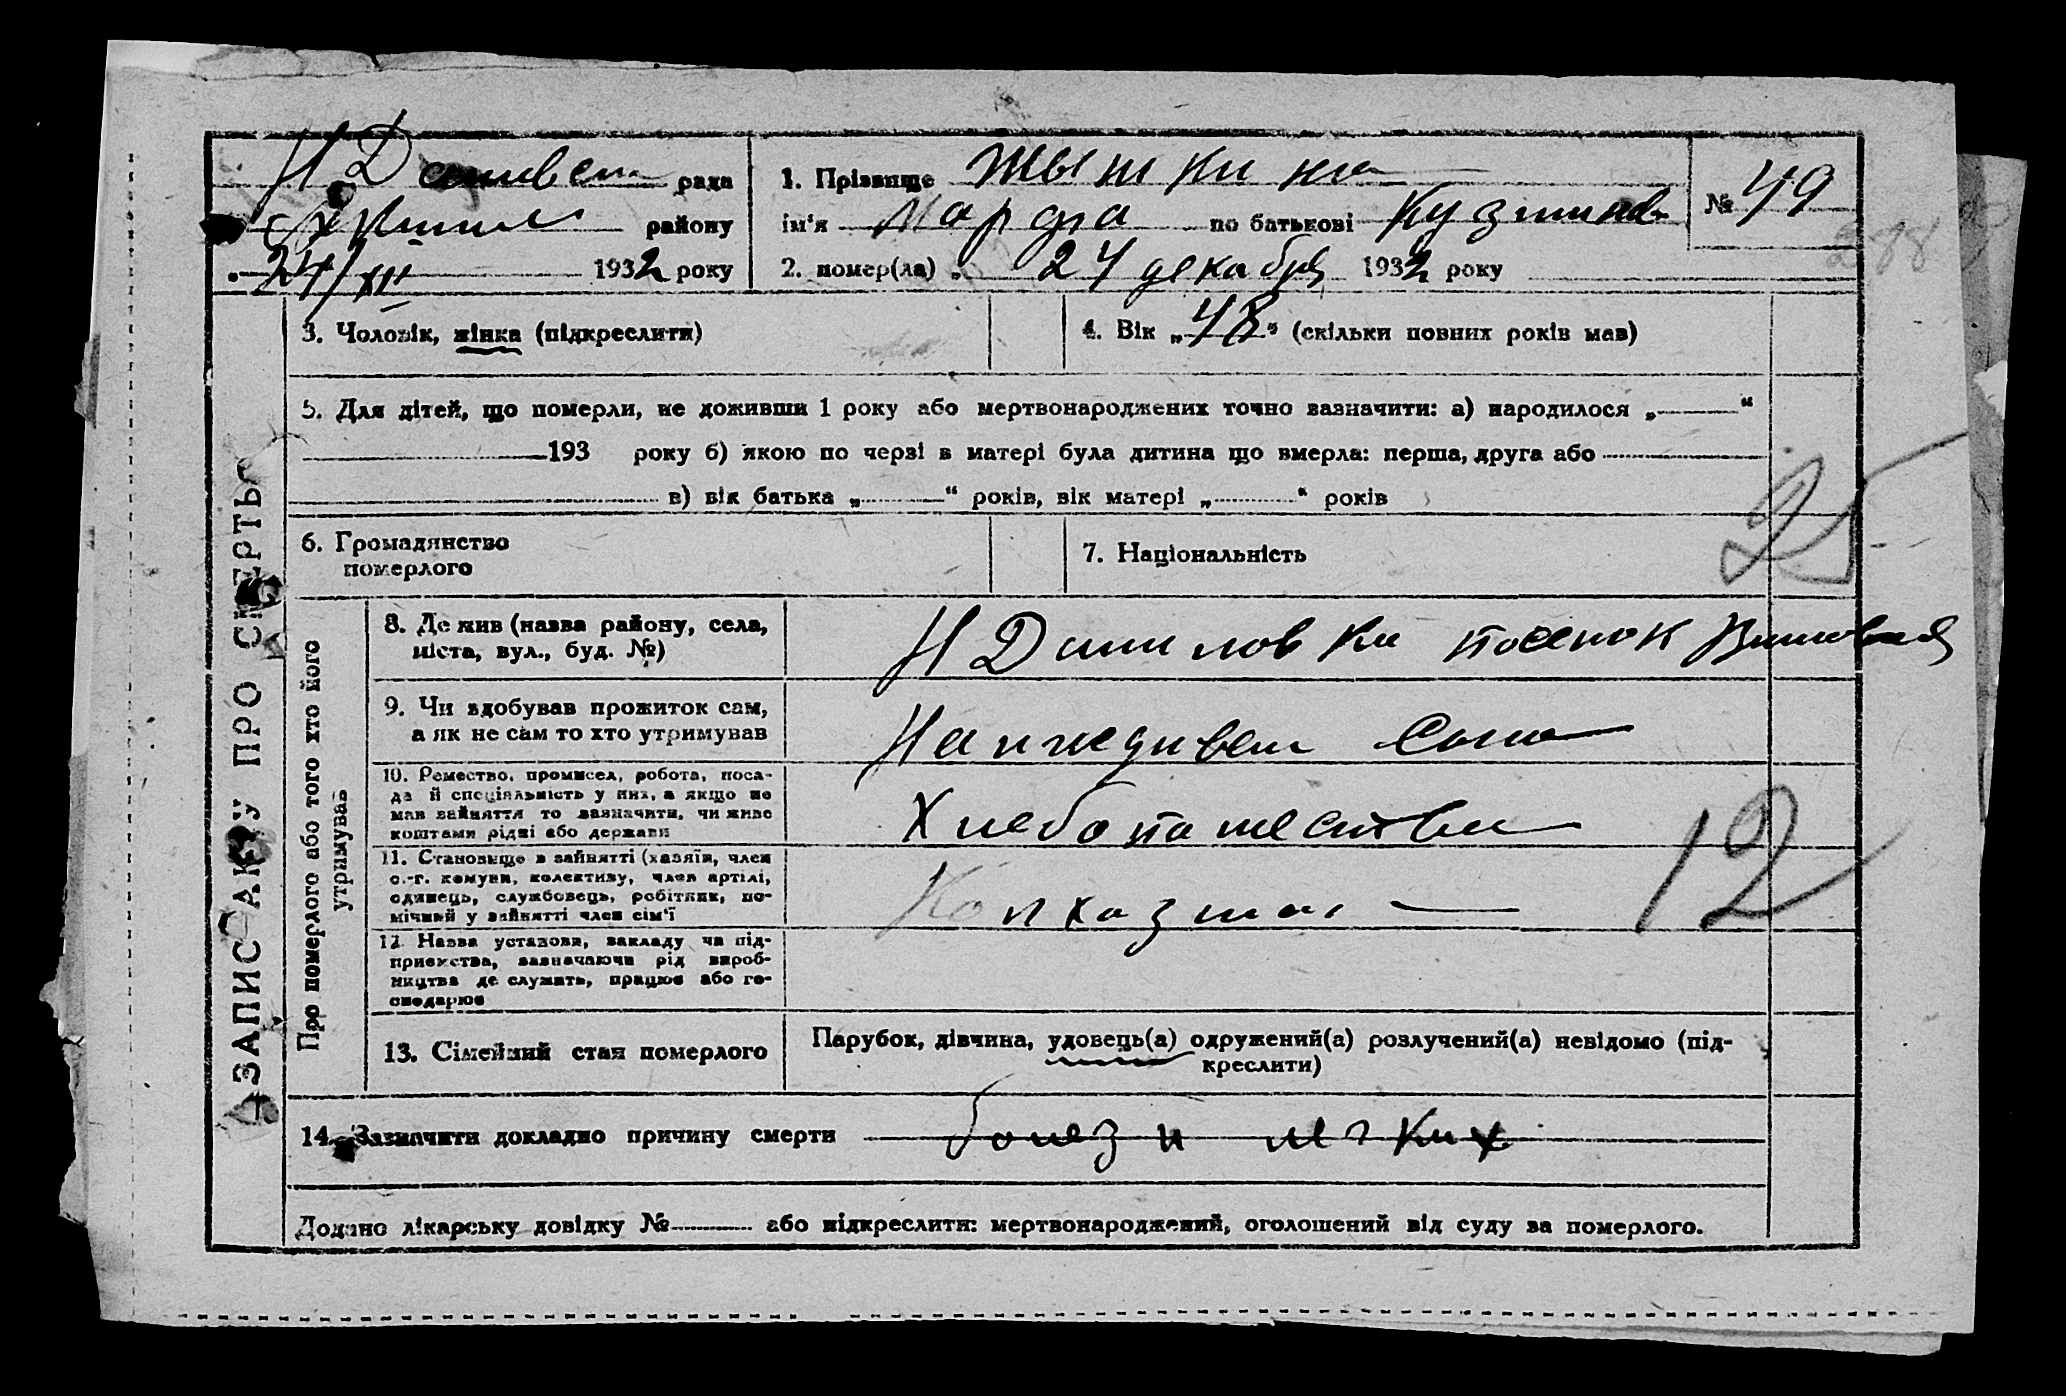 рада
району
24/XII 1932 року
1. Прізвище Жышкина
ім'я Марфа по батькові Кузминов
2. помер(ла) „ 24 декабря 1932 року
№ 49
288
3. Чоловік, жінка (підкреслити)
4. Вік „48" (скільки повних років мав)
5. Для дітей, що померли, не доживши 1 року або мертвонароджених точно зазначити: а) народилося „ "
193 року б) якою по черзі в матері була дитина що вмерла: перша, друга або
в) вік батька „ " років, вік матері „ " років
6. Громадянство
померлого
7. Національність
25
ЗАПИС АКТУ ПРО СМЕРТЬ
Про померлого або того хто його
утримував
8. Де жив (назва району, села,
міста, вул., буд. №)
Н Даниловки поселок
9. Чи здобував прожиток сам,
а як не сам то хто утримував
На иждивен сына
10. Ремество, промисел, робота, поса-
да й спеціяльність у них, а якщо не
мав зайняття то зазначити, чи живе
коштами рідні або держави
Хлебопашество
11. Становище в зайнятті (хазяїн, член
с.-г. комуни, колективу, член артілі,
одинець, службовець, робітник, по-
мічний у зайнятті член сім'ї
Колхозная
12
12. Назва установи, закладу чи під-
приємства, зазначаючи рід вироб-
ництва де служить, працює або го-
сподарює
13. Сімейний стан померлого
Парубок, дівчина, удовець(а) одружений(а) розлучений(а) невідомо (під-
креслити)
14. Зазначити докладно причину смерти болезн легких
Додано лікарську довідку № або підкреслити: мертвонароджений, оголошений від суду за померлого.